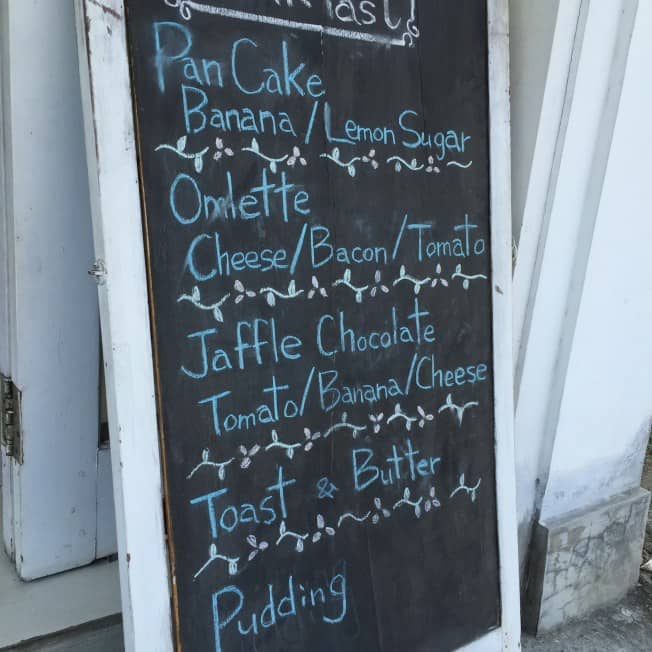 Pan Cake
Banana/Lemon Sugar
Omlette
Cheese/Bacon/Tomato
Jaffle Chocolate
Tomato/Banana/Cheese
Toast & Butter
Pudding